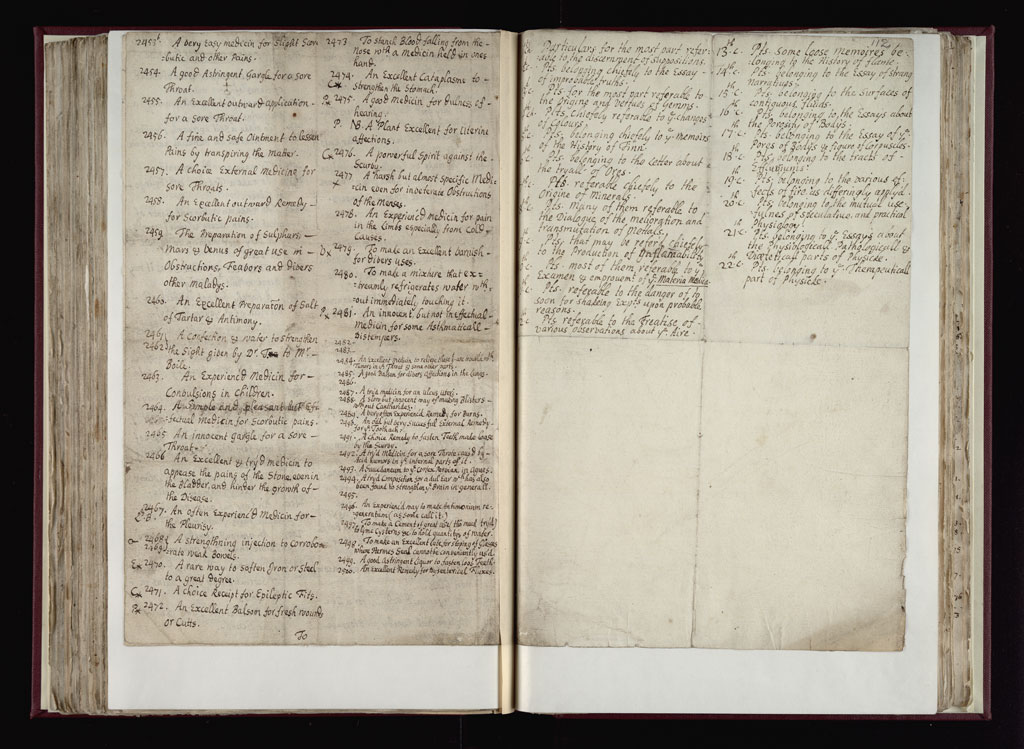 2453. A very Easy medicin for slight Scor-
butic and other Pains.
2454. A good Astringent Gargle for a sore
Throat.
2455. An Excellent outward application-
for a sore Throat.
2456. A fine and safe Ointment to lessen
Pains by transpiring the Matter.
2457. A choice External Medicine for
sore Throats.
2458. An Excellent outward Remedy-
for Scorbutic pains.
2459. The Preparation of Sulphur
Mars & Venus of great use in-
Obstructions, Feavors and divers
other Maladys.
2460. An Excellent Preparation of Salt
of Tartar & Antimony.
2461. A Confection & water to strengthen
2462. the Sight given by Dr. To Mr.-
Boile.
2463. An Experienc'd Medicin for-
Convulsions in Children.
2464. A simple and pleasant but Eff-
fectual Medicin for Scorbutic pains.
2465 An innocent Gargle for a sore-
Throat.
2466 An Excellent & try'd medicin to
appease the pains of the Stone, even in
the Bladder, and hinder the growth of-
the Disease.
2467. An often Experienc'd Medicin for-
the Pleurisy.
2468 A strengthning injection to Corrobo-
2469 rate weak Bowels.
2470. A rare way to soften Iron or Steel
to a great degree.
2471. A choice Receipt for Epileptic Fits.
2472. An Excellent Balsom for fresh wounds
or Cutts.
To
2473 To stanch Blood falling from the-
Nose wth a Medicin held in ones
hand.
2474. An Excellent Cataplasme to-
strengthen the Stomach.
2475. A good medicin for dulness of-
hearing.
P. NB. A Plant Excellent for Uterine
affections.
2476. A powerful Spirit against the
Scurvy.
2477 A harsh but almost Specific Medi-
cin even for inveterate Obstructions
of the Menses.
2478. An Experienc'd medicin for pain
in the Limbs especially from Cold-
Causes.
2479. To make an Excellent varnish-
for divers uses.
2480. To make a mixture that ex-
treamly refrigerates water wth-
out immediately touching it.
2481. An innocent but not ineffectual-
medicin for some Asthmaticall-
Distempers.
2482-
2483-
2484. An Excellent Medicin to
Tumors in ye Throat & some other parts.
2485. A good Balsom for divers affections in the Lungs.
2486.
2487. A try'd medicin for an ulcer
2488. A slow but innocent way of making Blisters-
without Cantharides.
2489. A very often Experienc'd Remedy for Burns.
2490. An odd yet very successfull External Remedy-
for ye Toothach.
2491. A choice Remedy to fasten Teeth made loose
by the Scurvy.
2492. A try'd Medicin for a sore Throat caus'd by-
Acid humors in ye internal parts of it.
2493. A Succedaneum to ye Cortex Peruvian. in Agues.
2494. A try'd Composition for a dull Ear wch has also
been found to strengthen ye Brain in generall.
2495.
2496. An Experienc'd way to make Antimonium re-
generatum (as some call it.)
2497. To make a Cement of great use, the most try'd
to lyne Cysterns &c to hold quantitys of water.
2498. To make an Excellent Lute for stoping of Glasses
where Hermes Seal cannot be conveniently us'd.
2499. A good Astringent Liquor to fasten loos Teeth.
2500. An Excellent Remedy for Dysenterical Fluxes.
Particulars for the most part refer-
rable to the discernment of Suppositions.
Pts. belonging chiefly to the Essay-
of improbable truths.
Pts. for the most part referable to
the Origine and Vertues of Gemms.
Pts. Chiefely referable to ye changes
of Colours.
Pts. belonging chiefely to ye memoirs
of the History of Tinn.
Pts. belonging to the Letter about
the tryall of Ores.
Pts. referable chiefely to the
Origine of Minerals.
Pts. many of them referable to
the Dialogue of the melioration and
transmutation of Metals.
Pts. that may be refer'd chiefely
to the Production of Inflamability
Pts. most of them referable to ye
Examen & emprovemt of ye Materia Medica
Pts. referable to the danger of to
soon for shaking Expts upon probable
reasons.
Pts. referable to the Treatise of-
various observations about ye Aire
112
13th c. Pts. some Loose memoires be-
longing to the History of flame.
14th c. Pts. belonging to the Essay of strang
narratives.
15th c. Pts. belonging to the surfaces of
contiguous fluids.
16th c. Pts. belonging to the Essays about
the Porosity of Bodys.
17th c. Pts. belonging to the Essay of ye
Pores of Bodys & figure of Corpuscles.
18th c. Pts. belonging to the tracts of-
Effluviums
19th c. Pts. belonging to the various ef-
fects of fire as differingly applyd.
20th c. Pts. belonging to the mutual use-
fulnes of speculative and practical
Physiology.
21th c. Pts. belonging to ye Essays about
the Physiologicall Pathologicall &
Diaeteticall parts of Physicke.
22th c. Pts. belonging to ye Therapeuticall
part of Physicke.